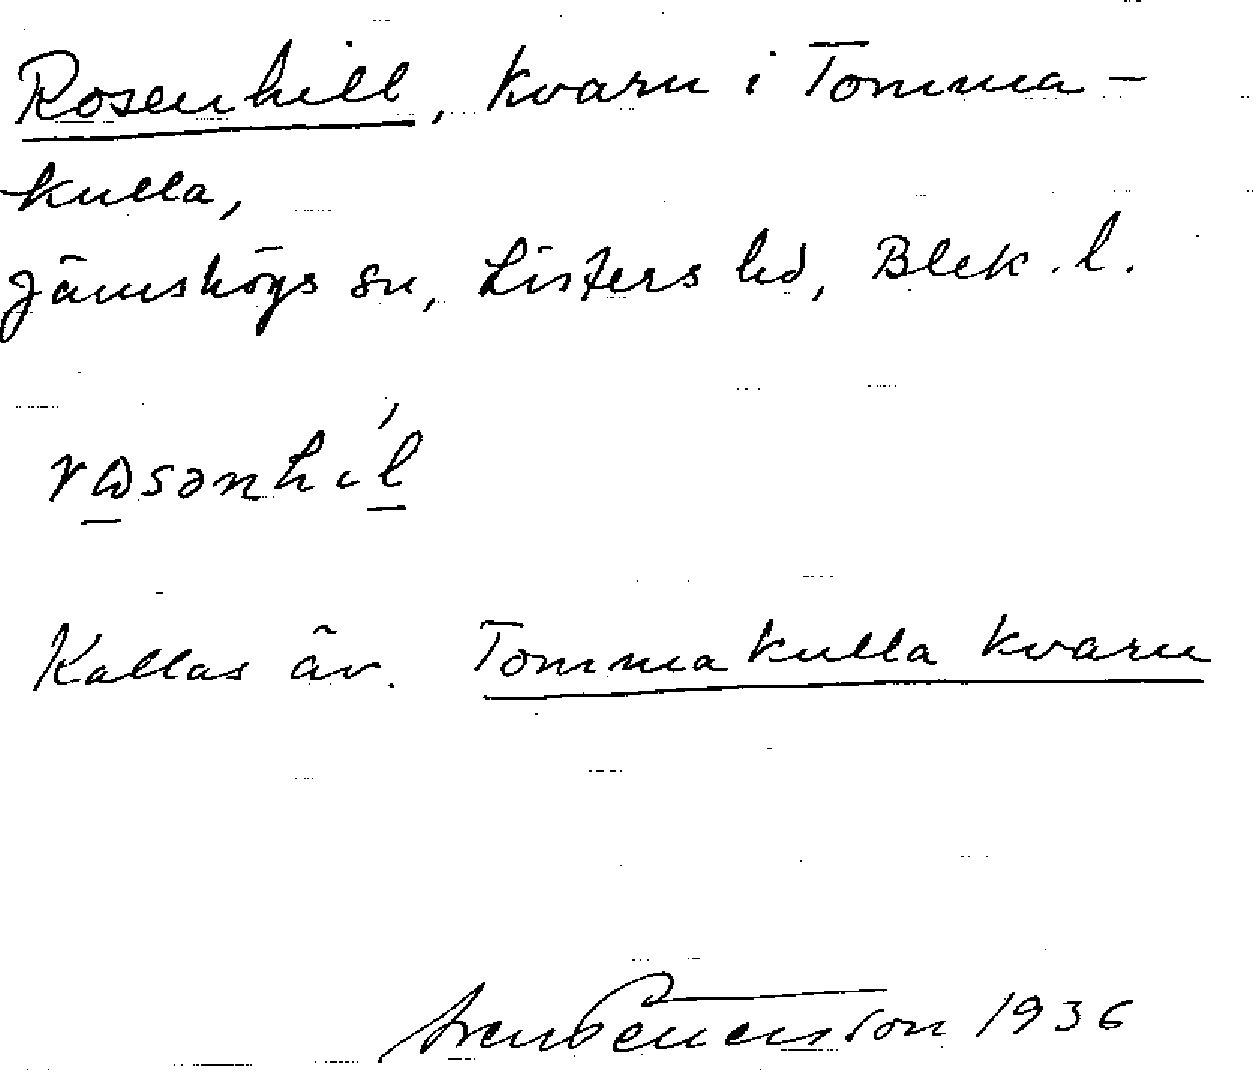 Rosenhill, kvarn i Tomma-
kulla,
Jämshögs sn, Listers hd, Blek. l.
rωsənhíl
Kallas äv. Tommakulla kvarn
Sven Benson 1936